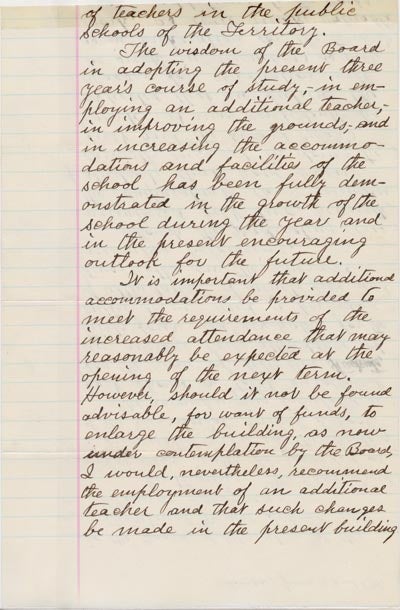 of teachers in the public
schools of the Territory.
The wisdom of the Board
in adopting the present three
year's course of study,- in em-
ploying an additional teacher,-
in improving the grounds,- and
in increasing the accommo-
dations and facilities of the
school has been fully dem-
onstrated in the growth of the
school during the year and
in the present encouraging
outlook for the future.
It is important that additional
accommodations be provided to
meet the requirements of the
increased attendance that may
reasonably be expected at the
opening of the next term.
However, should it not be found
advisable, for want of funds, to
enlarge the building, as now
under contemplation by the Board,
I would, nevertheless, recommend
the employment of an additional
teacher and that such changes
be made in the present building